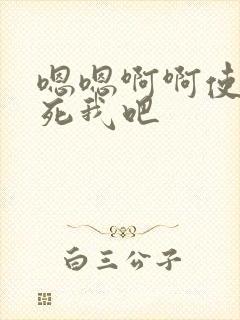 嗯嗯啊啊使
死我吧
白三公子